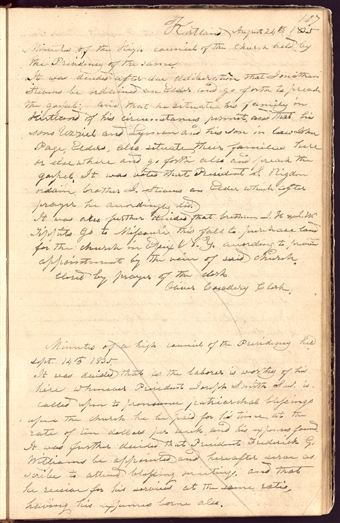 107
Kirtland, August 24th 1835
Minutes of the High council of the Church held by
the Presidency of the same,
It was decided after due deliberation that Jonathan
Stevens be ordained an Elder and go forth to preach
the gospel; and that he situate his family in
Kirtland if his circumstances permit, and that his
sons Uzziel and Lyman and his son in law John
Page, Elders, also situate their families here
or elsewhere and go forth also and preach the
gospel. It was voted that President S. Rigdon
ordain brother J. Stevens an Elder which after
prayer he accordingly did.
It was also further decided that brethren
Tippits go to Missouri this fall to purchase land
for the church in Essex N.Y. according to previous
appointment by the voice of said church,
closed by prayer of the clerk
Oliver Cowdery Clerk.
Minutes of a high council of the Presidency held
sept. 14th 1835
It was decided that as the laborer is worthy of his
hire whenever President Joseph Smith Sen. is
called upon to pronounce patriarchal blessings
upon the church he be paid for his time at the
rate of ten dollars per week and his expenses found
It was further decided that President Frederick G.
Williams be appointed and hereafter serve as
scribe to attend blessing meetings, and that
he receive for his services at the same ratio,
having his expenses borne also.